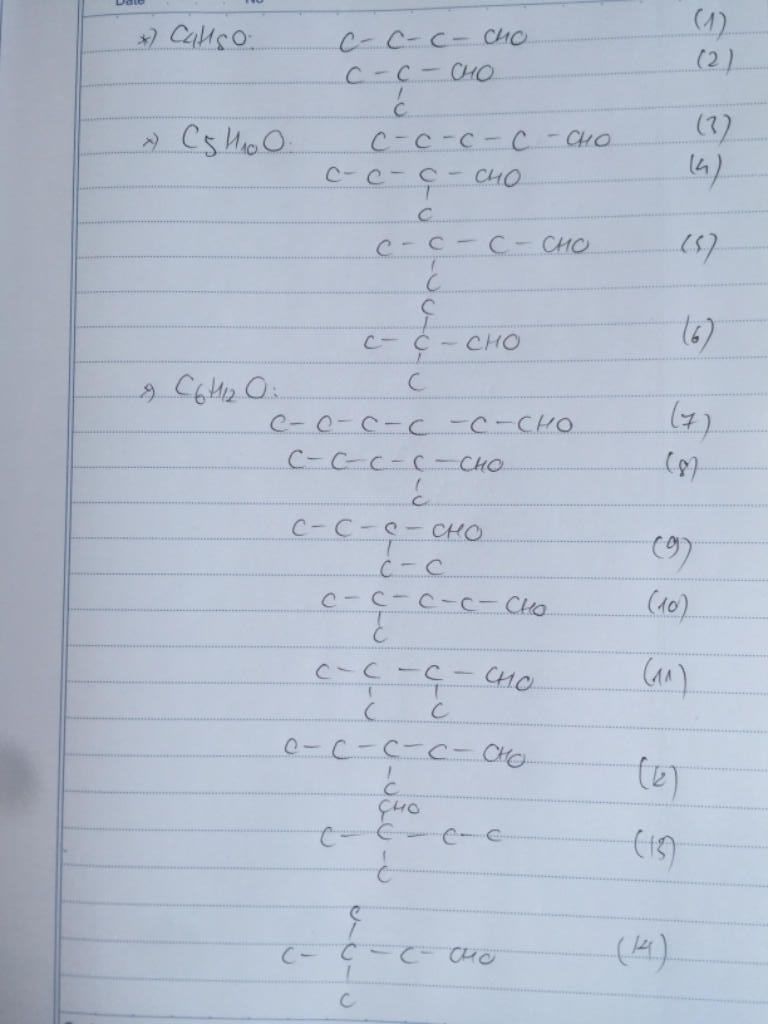 Date No
*) C4H8O: C - C - C - CHO (1)
C - C - CHO (2)
C
*) C5H10O: C - C - C - C - CHO (3)
C - C - C - CHO (4)
C
C - C - C - CHO (5)
C
C
C - C - CHO (6)
C
*) C6H12O:
C - C - C - C - C - CHO (7)
C - C - C - C - CHO (8)
C
C - C - C - CHO (9)
C - C
C - C - C - C - CHO (10)
C
C - C - C - CHO (11)
C C
C - C - C - C - CHO (12)
C
CHO
C - C - C - C (13)
C
C
C - C - C - CHO (14)
C